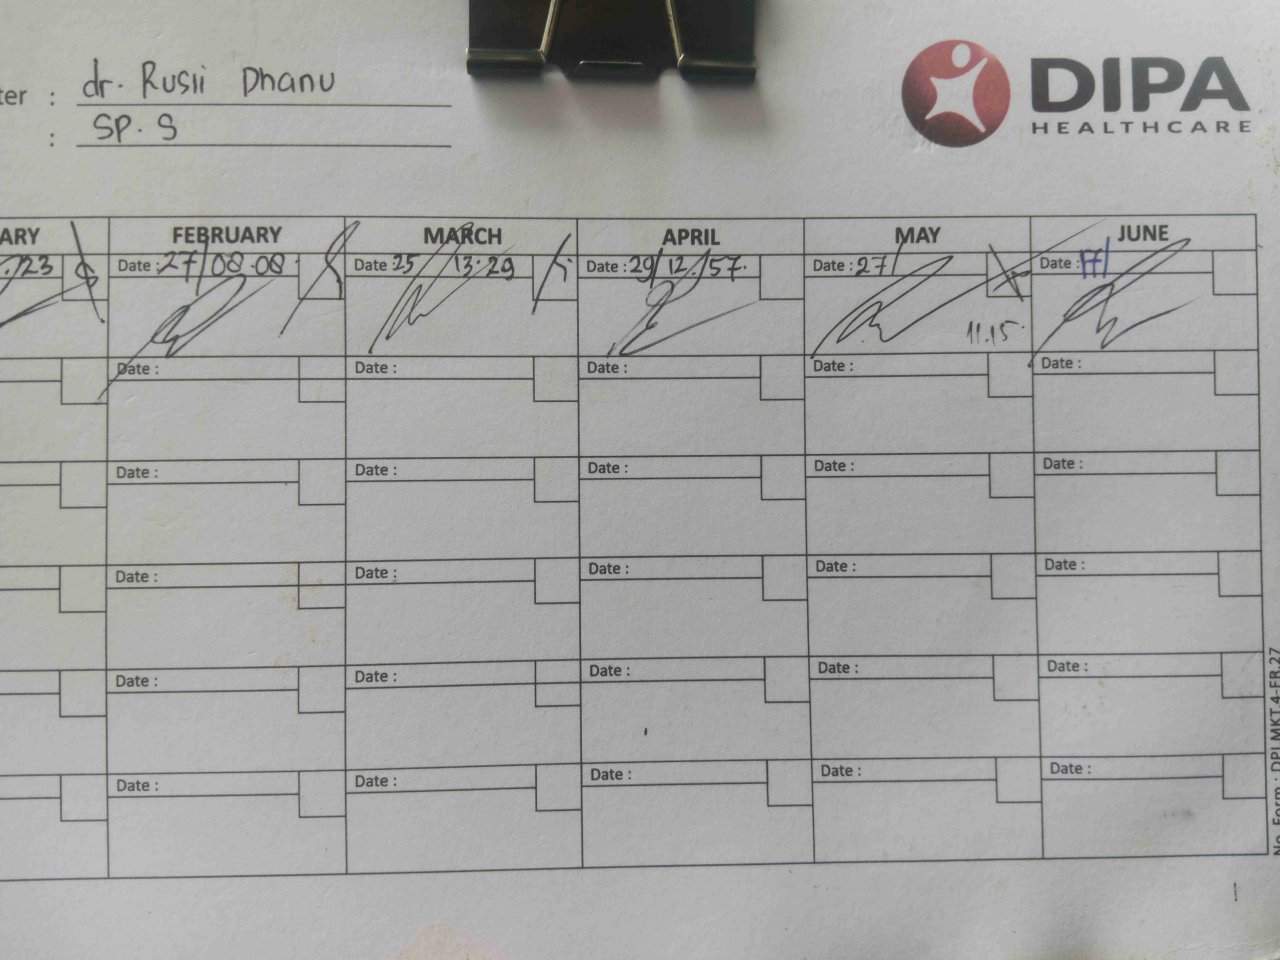 ter : dr. Rusli Dhanu
: SP. S
DIPA
HEALTHCARE
ARY FEBRUARY MARCH APRIL MAY JUNE
/23 Date : 27/ 08.08 Date : 25 13.29 Date : 29/ 12./57. Date : 27/ Date : 17/
11.15
Date : Date : Date : Date : Date :
Date : Date : Date : Date : Date :
Date : Date : Date : Date : Date :
Date : Date : Date : Date : Date :
Date : Date : Date : Date : Date :
No. Form : DPI.MKT.4-FR.27
1